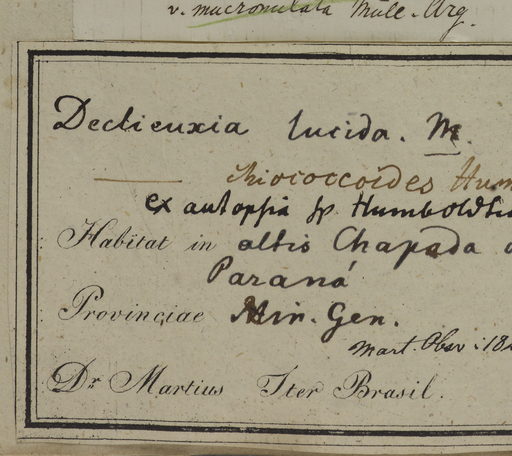 v. mucronulata Müll.-Arg.
Declieuxia lucida. M.
chiococcoides Hum
ex autopsia sp. Humboldti
Habitat in altis Chapada
Paraná
Provinciae Min. Gen.
Mart. Obs. 18
Dr Martius Iter Brasil.